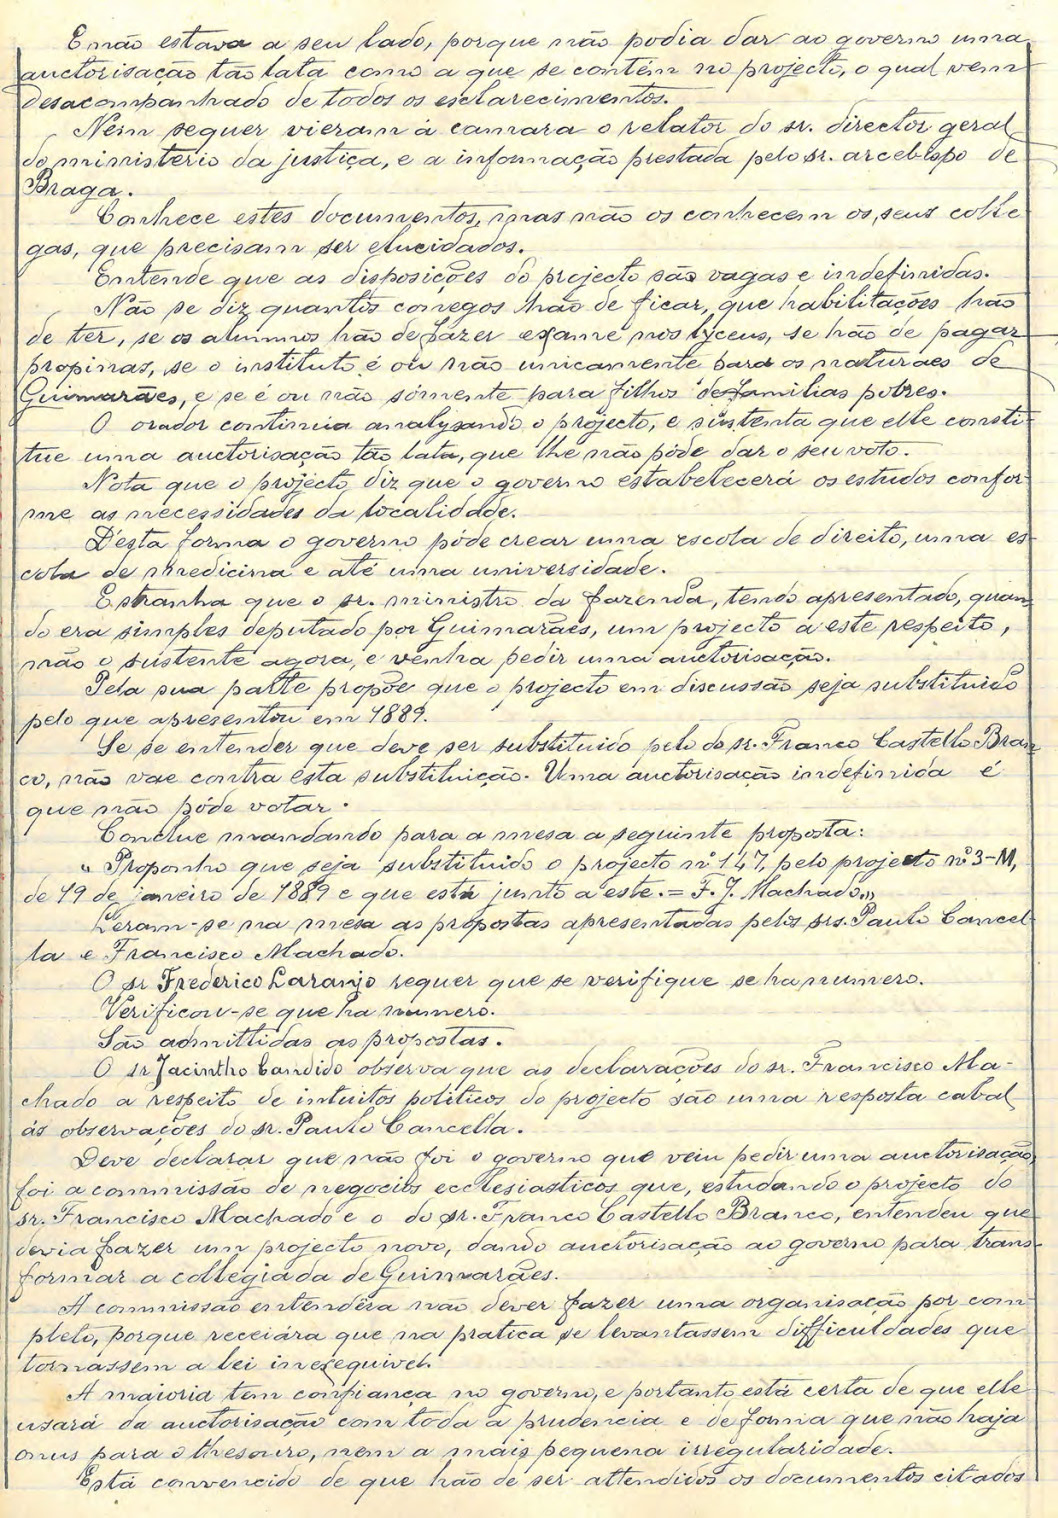 E não estava a seu lado, porque não podia dar ao governo uma
auctorisação tão lata como a que se contém no projecto, o qual vem
desacompanhado de todos os esclarecimentos.
Nem sequer vieram á camara o relator do sr. director geral
do ministerio da justiça, e a informação prestada pelo sr. arcebispo de
Braga.
Conhece estes documentos, mas não os conhecem os seus colle
gas, que precisam ser elucidados.
Entende que as disposições do projecto são vagas e indefinidas.
Não se diz quantos conegos hão de ficar, que habilitações hão
de ter, se os alumnos hão de fazer exame nos lyceus, se hão de pagar
propinas, se o instituto é ou não unicamente para os naturaes de
Guimarães, e se é ou não sómente para filhos de familias pobres.
O orador continúa analysando o projecto, e sustenta que elle consti-
tue uma auctorisação tão lata, que lhe não póde dar o seu voto.
Nota que o projecto diz que o governo estabelecerá os estudos confor-
me as necessidades da localidade.
D'esta forma o governo póde crear uma escola de direito, uma es-
cola de medicina e até uma universidade.
Estranha que o sr. ministro da fazenda, tendo apresentado, quan-
do era simples deputado por Guimarães, um projecto a este respeito,
não o sustente agora, e venha pedir uma auctorisação.
Pela sua parte propõe que o projecto em discussão seja substituido
pelo que apresentou em 1889.
Se se entender que deve ser substituido pelo do sr. Franco Castello Bran-
co, não vae contra esta substituição. Uma auctorisação indefinida é
que não póde votar.
Conclue mandando para a mesa a seguinte proposta:
"Proponho que seja substituido o projecto nº 147, pelo projecto nº 3-M,
de 19 de janeiro de 1889 e que está junto a este. = F. J. Machado."
Leram-se na mesa as propostas apresentadas pelos srs. Paulo Cancel-
la e Francisco Machado.
O sr Frederico Laranjo requer que se verifique se ha numero.
Verificou-se que ha numero.
São admittidas as propostas.
O sr Jacintho Candido observa que as declarações do sr. Francisco Ma-
chado a respeito de intuitos politicos do projecto são uma resposta cabal
ás observações do sr. Paulo Cancella.
Deve declarar que não foi o governo que veiu pedir uma auctorisação,
foi a commissão de negocios ecclesiasticos que, estudando o projecto do
sr. Francisco Machado e o do sr. Franco Castello Branco, entendeu que
devia fazer um projecto novo, dando auctorisação ao governo para trans-
formar a collegiada de Guimarães.
A commissão entendêra não dever fazer uma organisação por com
pleto, porque receiára que na pratica se levantassem difficuldades que
tornassem a lei inexequivel.
A maioria tem confiança no governo, e portanto está certa de que elle
usará da auctorisação com toda a prudencia e de forma que não haja
onus para o thesouro, nem a mais pequena irregularidade.
Está convencido de que hão de ser attendidos os documentos citados